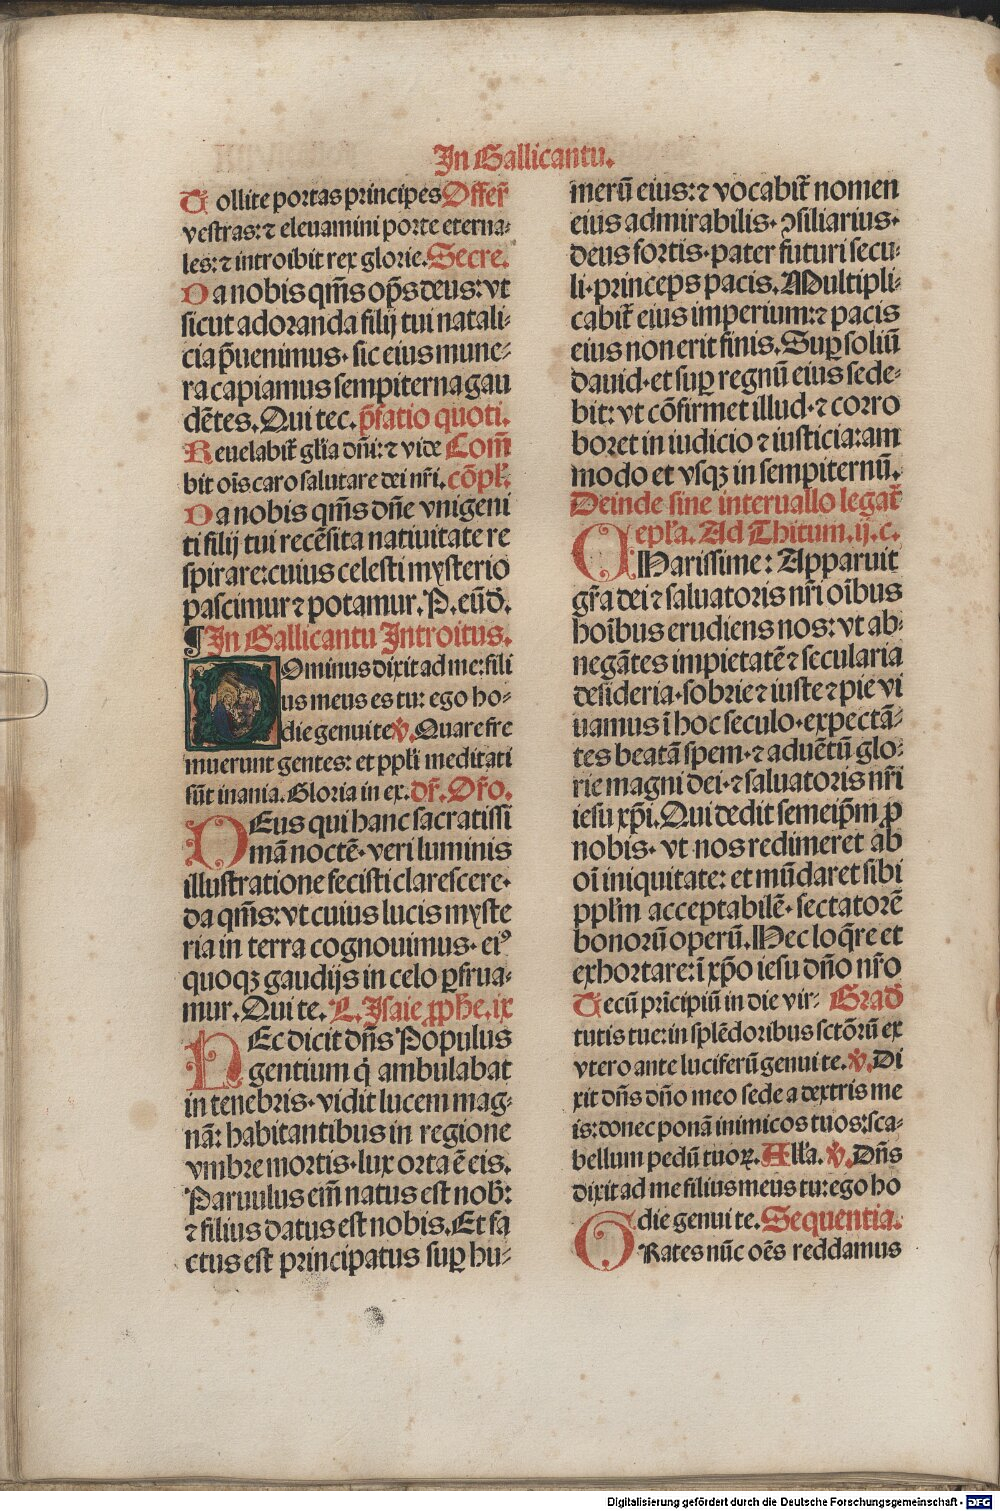 In Gallicantu.
Tollite portas principes Offer̄
vestras: ⁊ eleuamini porte eterna-
les: ⁊ introibit rex glorie. Secre.
Da nobis qm̄s op̄s deus: vt
sicut adoranda filij tui natali-
cia p̄uenimus. sic eius mune-
ra capiamus sempiterna gau
dētes. Qui tec. p̄fatio quoti.
Reuelabit̄ gl̄ia dn̄i: ⁊ vide Com̄
bit oīs caro salutare dei nr̄i. cōpl̄.
Da nobis qm̄s dn̄e vnigeni
ti filij tui recēsita natiuitate re
spirare: cuius celesti mysterio
pascimur ⁊ potamur. P. eūd̄.
¶ In Gallicantu Introitus.
Dominus dixit ad me: fili
us meus es tu: ego ho-
die genui te ℣. Quare fre
muerunt gentes: et ppl̄i meditati
sūt inania. Gloria in ex. dr̄. Or̄o.
Deus qui hanc sacratissi
mā noctē. veri luminis
illustratione fecisti clarescere.
da qm̄s: vt cuius lucis myste
ria in terra cognouimus. eiꝰ
quoqꝫ gaudijs in celo ꝑfrua-
mur. Qui te. L. Isaie ꝓphe. ix
Hec dicit dn̄s Populus
gentium q̄ ambulabat
in tenebris. vidit lucem mag-
nā: habitantibus in regione
vmbre mortis. lux orta ē eis.
Paruulus em̄ natus est nob̄:
⁊ filius datus est nobis. Et fa
ctus est principatus suꝑ hu-
merū eius: ⁊ vocabit̄ nomen
eius admirabilis. ꝯsiliarius.
deus fortis. pater futuri secu-
li. princeps pacis. Multipli-
cabit̄ eius imperium: ⁊ pacis
eius non erit finis. Suꝑ soliū
dauid. et suꝑ regnū eius sede-
bit: vt cōfirmet illud. ⁊ corro
boret in iudicio ⁊ iusticia: am
modo et vsqꝫ in sempiternū.
Deinde sine interuallo legat̄
epl̄a. Ad Thitum. ij. c.
Charissime: Apparuit
gr̄a dei ⁊ saluatoris nr̄i oībus
hoībus erudiens nos: vt ab-
negātes impietatē ⁊ secularia
desideria. sobrie ⁊ iuste ⁊ pie vi
uamus ī hoc seculo. expectā-
tes beatā spem. ⁊ aduētū glo-
rie magni dei. ⁊ saluatoris nr̄i
iesu xp̄i. Qui dedit semeip̄m ꝓ
nobis. vt nos redimeret ab
oī iniquitate: et mūdaret sibi
ppl̄m acceptabilē. sectatorē
bonorū operū. Hec loq̄re et
exhortare: ī xp̄o iesu dn̄o nr̄o
Tecū prīcipiū in die vir- Grad̄
tutis tue: in splēdoribus sctōrū ex
vtero ante luciferū genui te. ℣. Di
xit dn̄s dn̄o meo sede a dextris me
is: donec ponā inimicos tuos: sca-
bellum pedū tuoꝝ. All̄a. ℣. Dn̄s
dixit ad me filius meus tu: ego ho
die genui te. Sequentia.
Grates nūc oēs reddamus
Digitalisierung gefördert durch die Deutsche Forschungsgemeinschaft - DFG